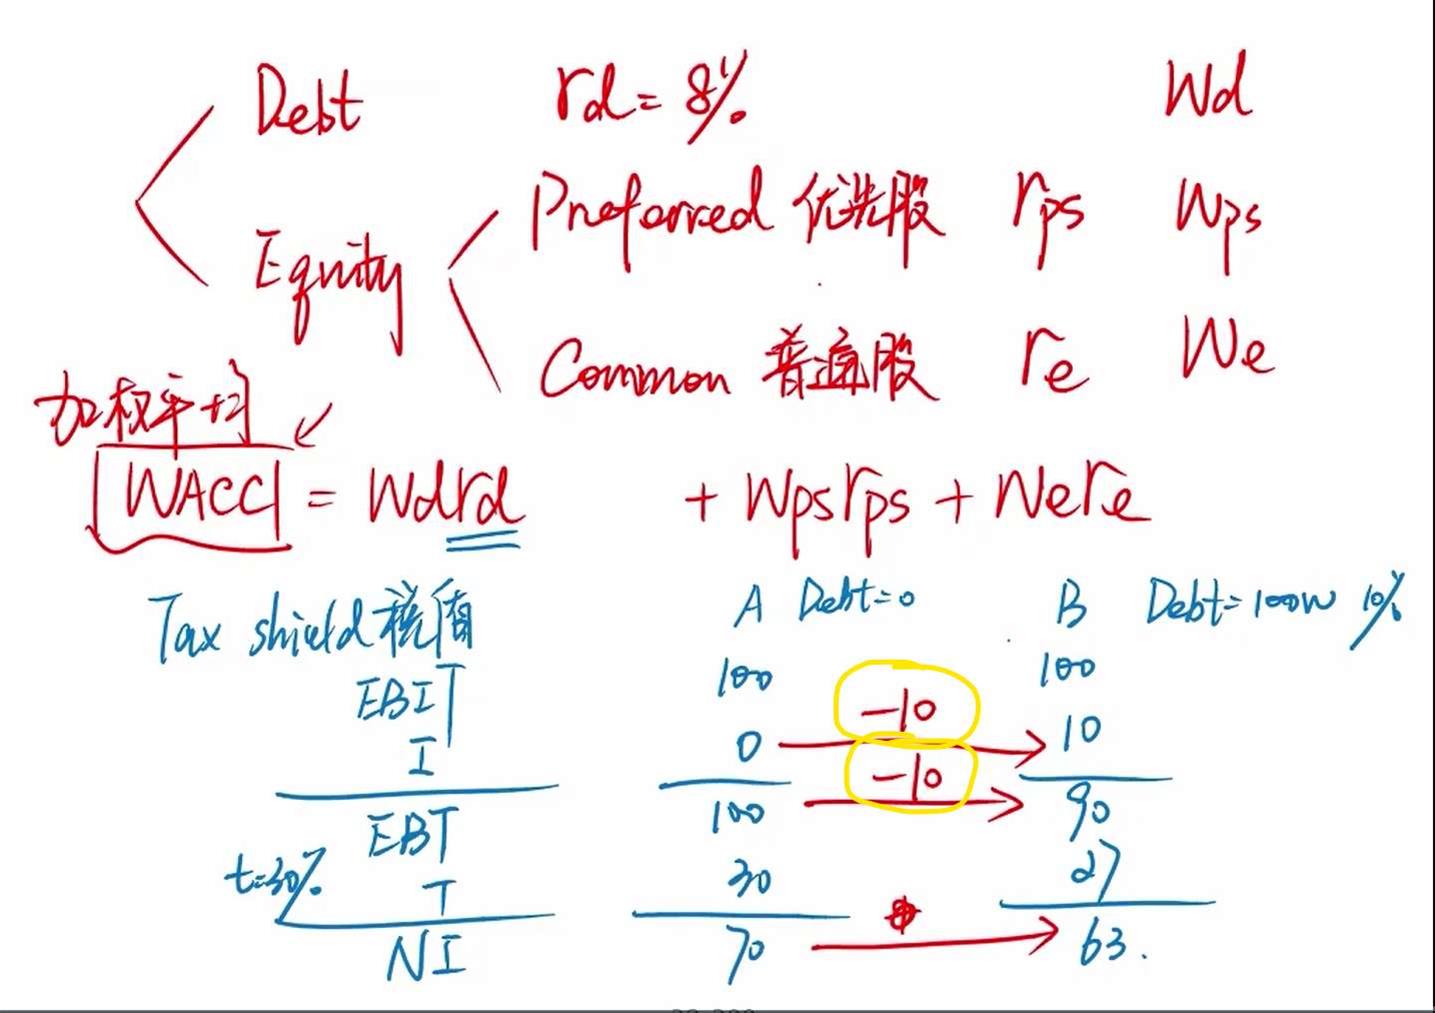 Debt rd = 8% Wd
Preferred 优先股 rps Wps
Equity
Common 普通股 re We
加权平均
WACC = Wdrd + Wpsrps + Were
Tax shield 税盾 A Debt=0 B Debt=100W 10%
EBIT 100 -10 100
I 0 10
-10
EBT 100 90
t=30% T 30 27
NI 70 63.